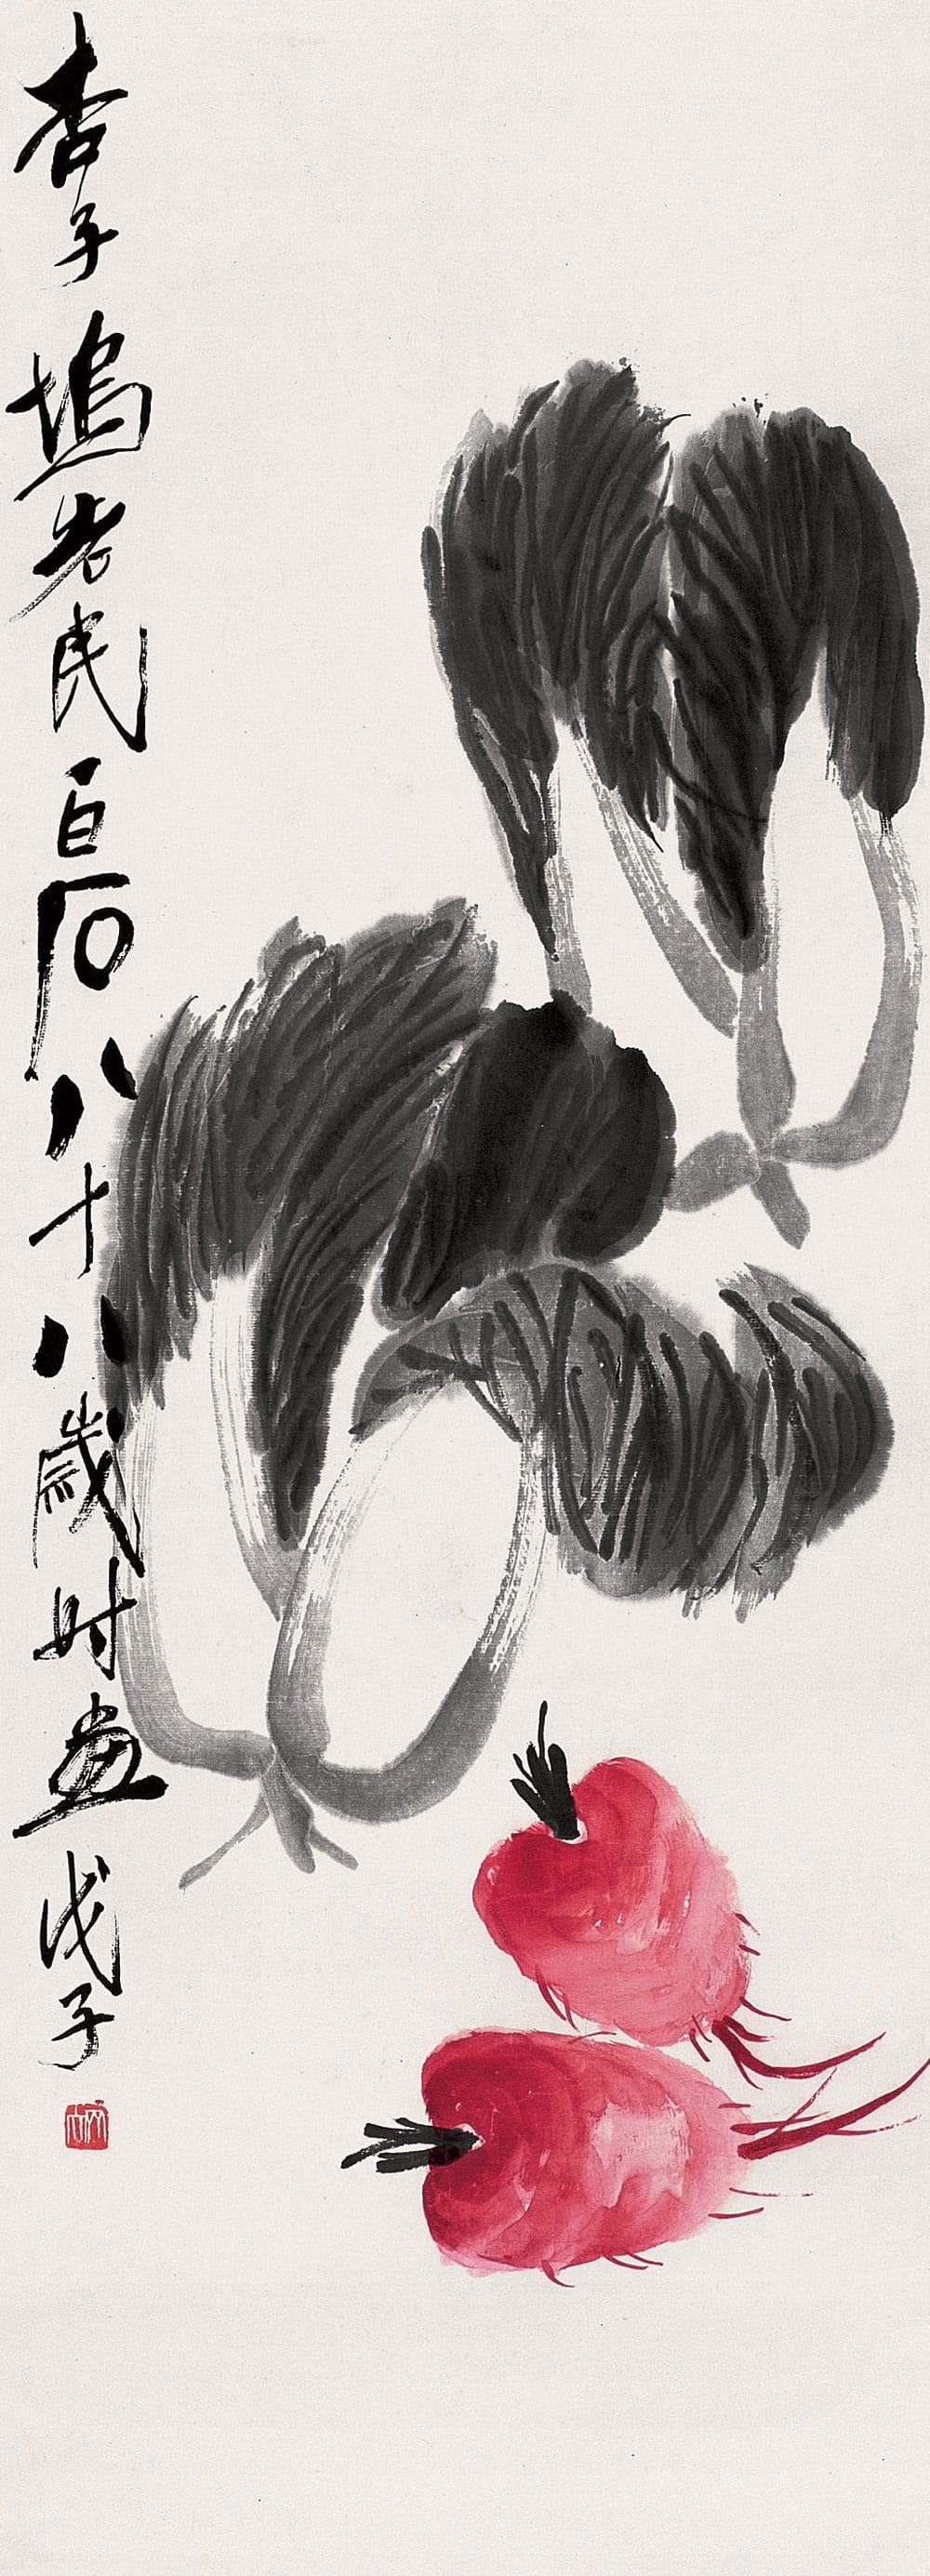 杏子塢老民白石八十八歲時畫戊子